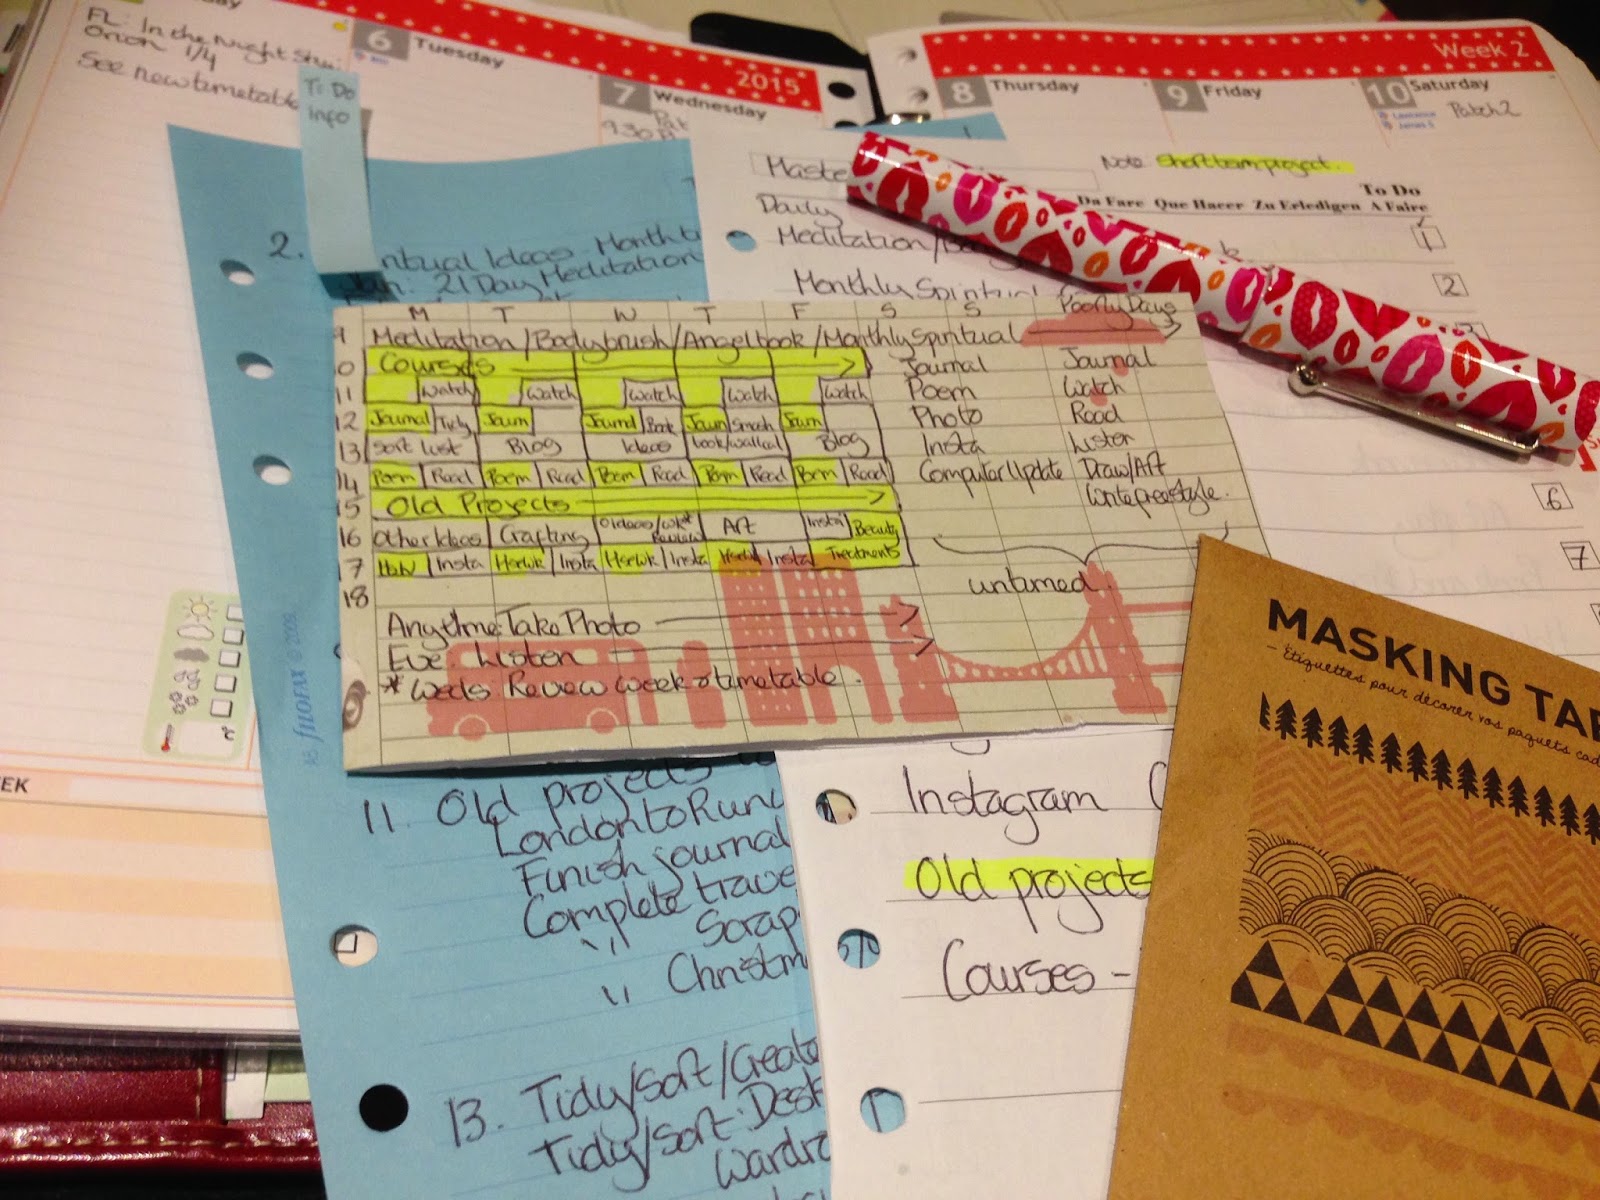 FL: In the Night
Orion 1/4
See new timetable
6 Tuesday
2015
7 Wednesday
9.30
Week 2
8 Thursday
9 Friday
10 Saturday
Lawrence
James S
Patch 2
To Do
Info
2.
Ideas Monthly
Jan: 21 Day Meditation
Maste
Note: Short term project.
To Do
Da Fare Que Hacer Zu Erledigen A Faire
Daily
Meditation/
Monthly Spiritual
1
2
6
7
M T W T F S S Poorly Days
9 Meditation/Bodybrush/Angelbook/Monthly Spiritual
0 Courses Journal Journal
11 Watch Watch Watch Watch Watch Poem Watch
12 Journal Tidy Journ Journal Book Journ Smash Journ Photo Read
13 Sort List Blog Ideas book/walkal Blog Insta Listen
14 Poem Read Poem Read Poem Read Poem Read Poem Read Computer Update Draw/Art
15 Old Projects Write freestyle.
16 Other Ideas Crafting Art Insta Beauty
17 Insta Hsewk Insta Hsewk Insta Hsewk Insta Treatments
18 untimed.
Anytime: Take Photo
Eve: Listen
* Weds: Review week & timetable.
filofax © 2009
A5
EEK
11. Old projects
London to
Finish journal
Complete trave
" Scrap
" Christm
13. Tidy/Sort/Create
Tidy/Sort: Desk
Wardro
Instagram
Old projects
Courses -
MASKING TAP
- Étiquettes pour décorer vos paquets cad